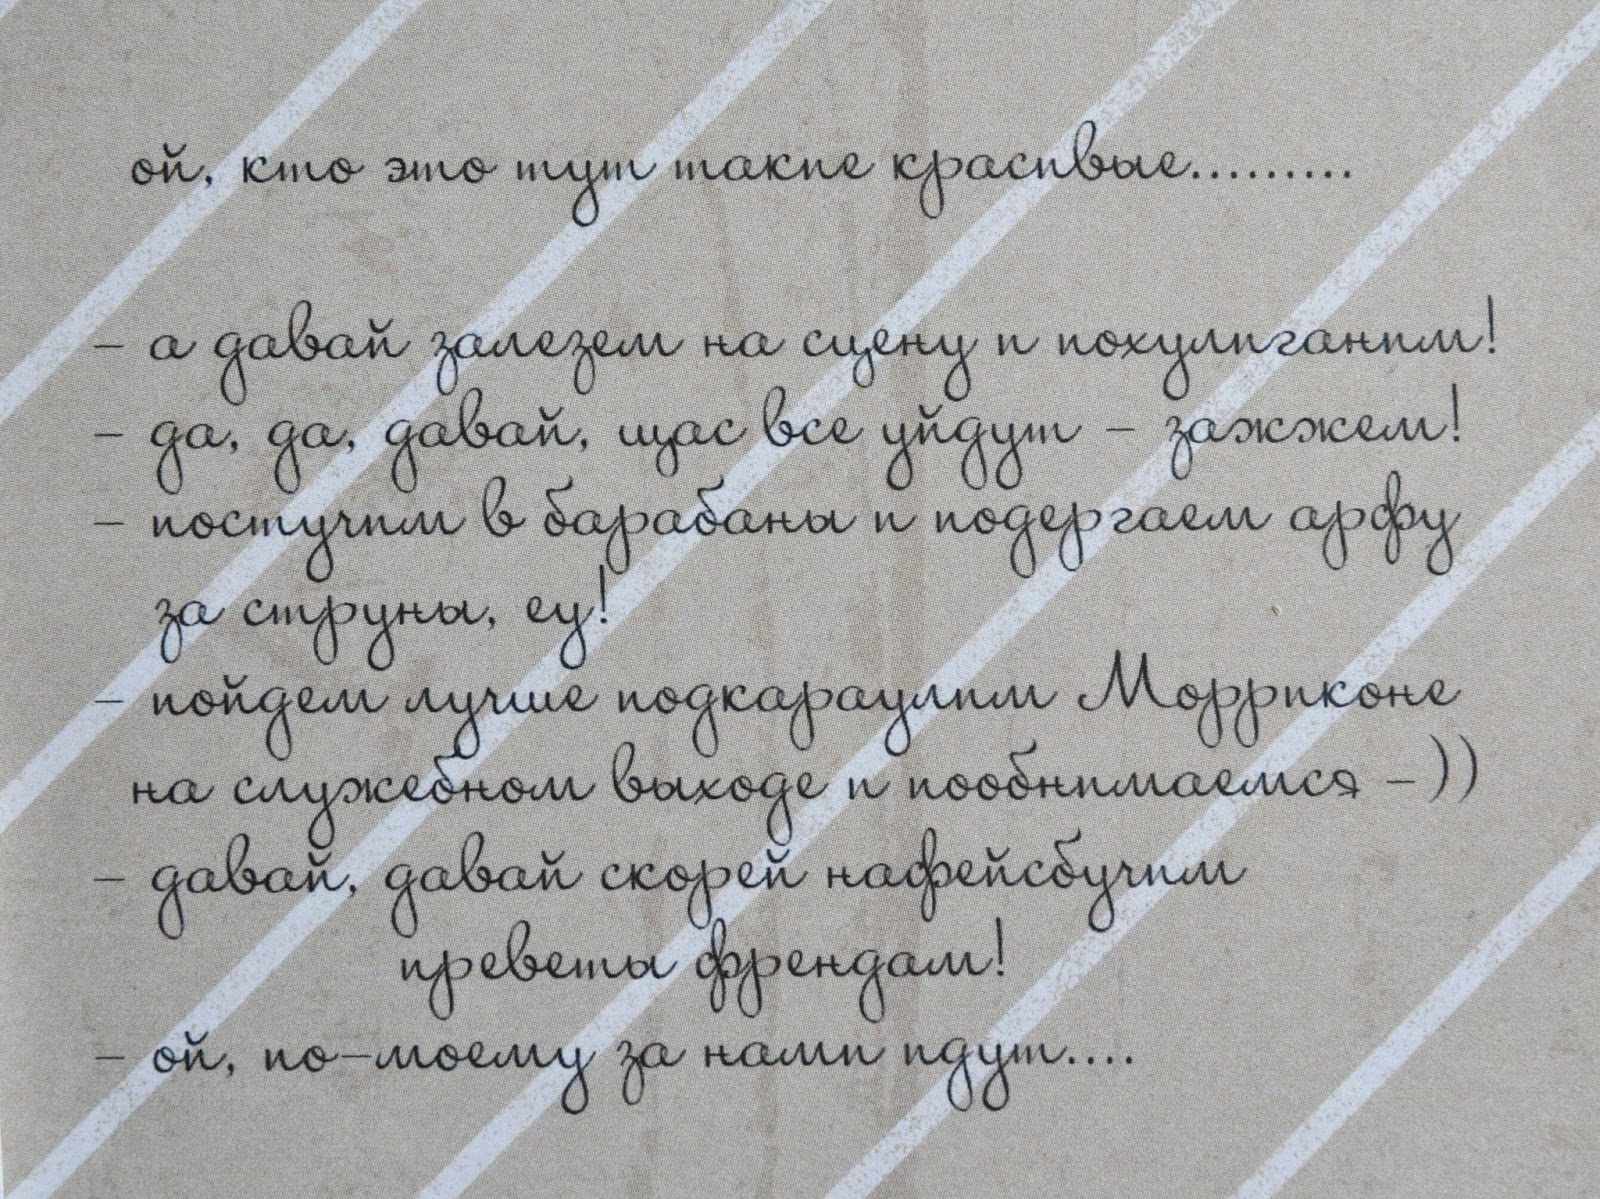 ой, кто это тут такие красивые.........
- а давай залезем на сцену и похулиганим!
- да, да, давай, щас все уйдут - зажжем!
- постучим в барабаны и подергаем арфу
за струны, еу!
- пойдем лучше подкараулимМорриконе
на служебном выходе и пообнимаемся -))
- давай, давай скорей нафейсбучим
преветы френдам!
- ой, по-моему за нами идут....